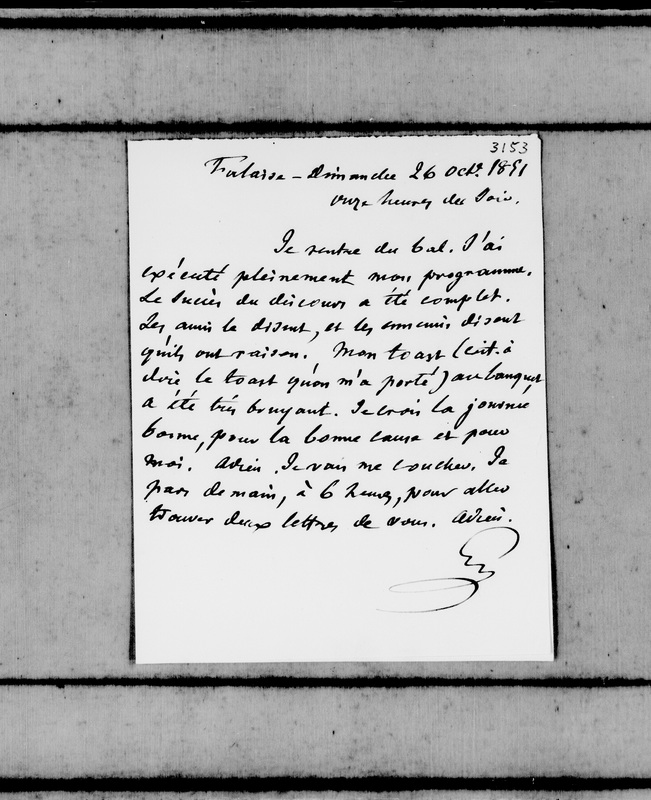 3153
Falaise - Dimanche 26 Oct. 1851
onze heures du Soir.
Je rentre du bal. J'ai
exécuté pleinement mon programme.
Le Succès du discours a été complet.
Les amis le disent, et les ennemis disent
qu'ils ont raison. Mon toast (c'est-à
dire le toast qu'on m'a porté) au banquet,
a été très bruyant. Je crois la journée
bonne, pour la bonne cause et pour
moi. Adieu. Je vais me coucher. Je
pars demain, à 6 heures, pour aller
trouver deux lettres de vous. Adieu.